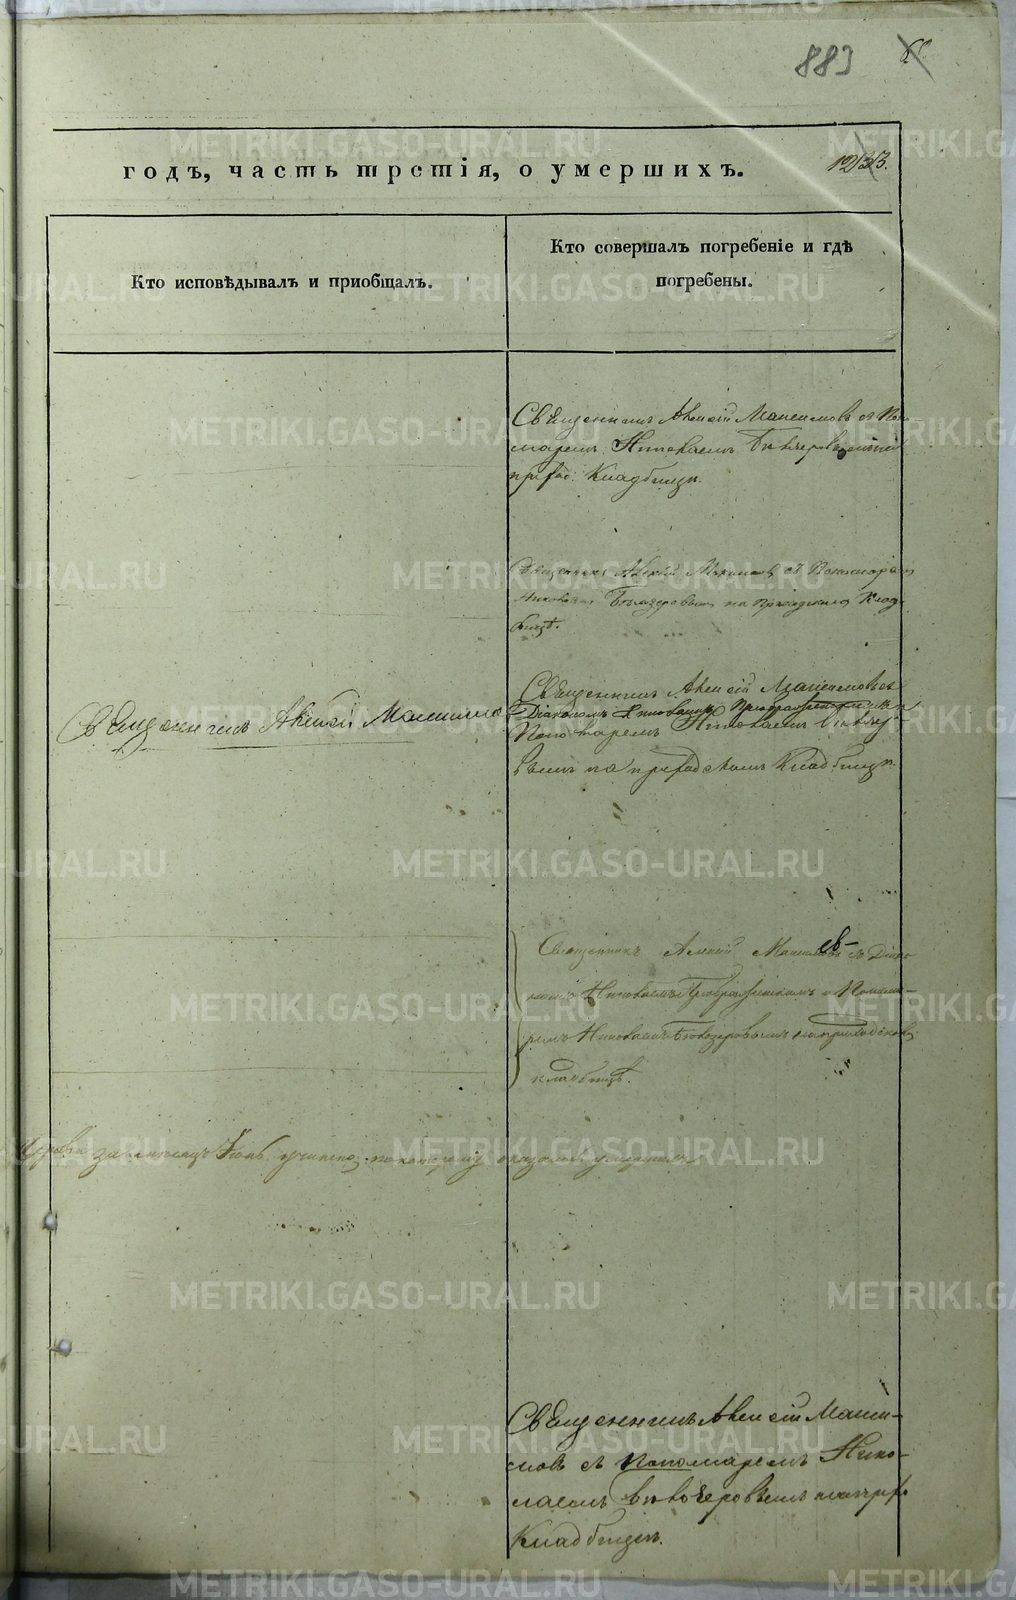 883
годъ, часть третія, о умершихъ.
1233.
Кто исповѣдывалъ и приобщалъ.
Кто совершалъ погребеніе и гдѣ
погребены.
Священникъ Алексій Максимовъ съ По-
маремъ Николаемъ Бѣлозеровымъ на
приход. Кладбищѣ.
Священникъ Алексій Максимовъ съ Пономаремъ
Николаемъ Бѣлозеровымъ на Приходскомъ Клад-
бищѣ.
Священникъ Алексій Максимо
Священникъ Алексій Максимовъ съ
Діакономъ Николаемъ Преображенскимъ и
Пономаремъ Николаемъ Бѣлозеро-
вымъ на приходскомъ Кладбищѣ.
Священникъ Алексій Максимовъ съ Діако-
номъ Николаемъ Преображенскимъ и Понома-
ремъ Николаемъ Бѣлозеровымъ на приходскомъ
кладбищѣ.
за мѣсяцъ учинено, по которой оказалось умершихъ
Священникъ Алексій Макси-
мовъ съ Пономаремъ Нико-
лаемъ Бѣлозеровымъ на прихо
Кладбищѣ.
METRIKI.GASO-URAL.RU